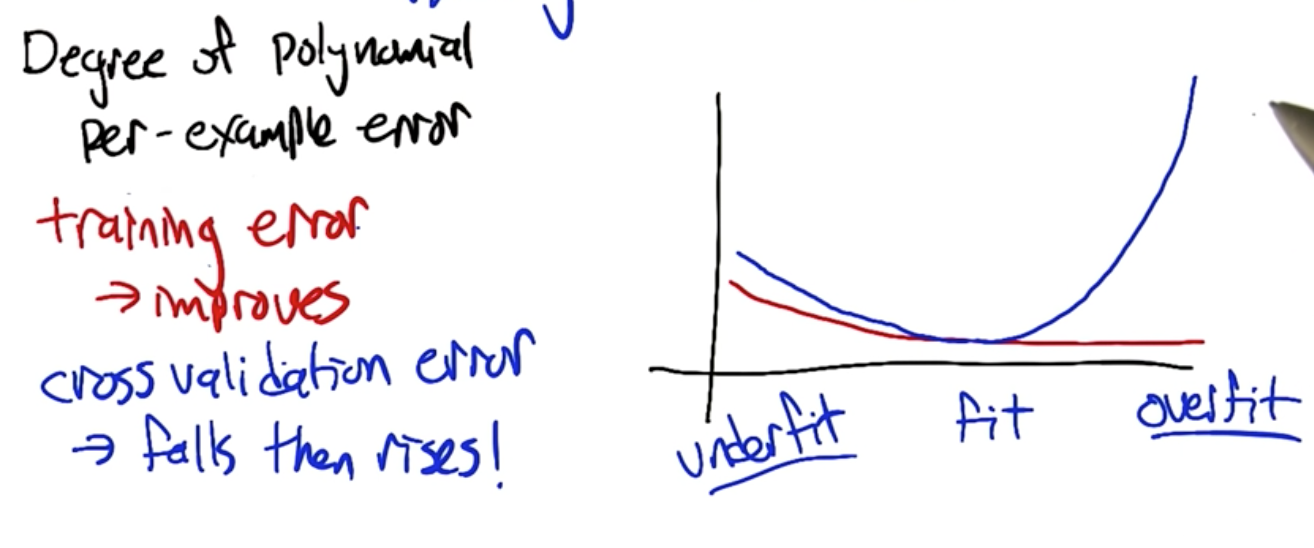 Degree of polynomial
per-example error
training error
→ improves
cross validation error
→ falls then rises!
underfit fit overfit